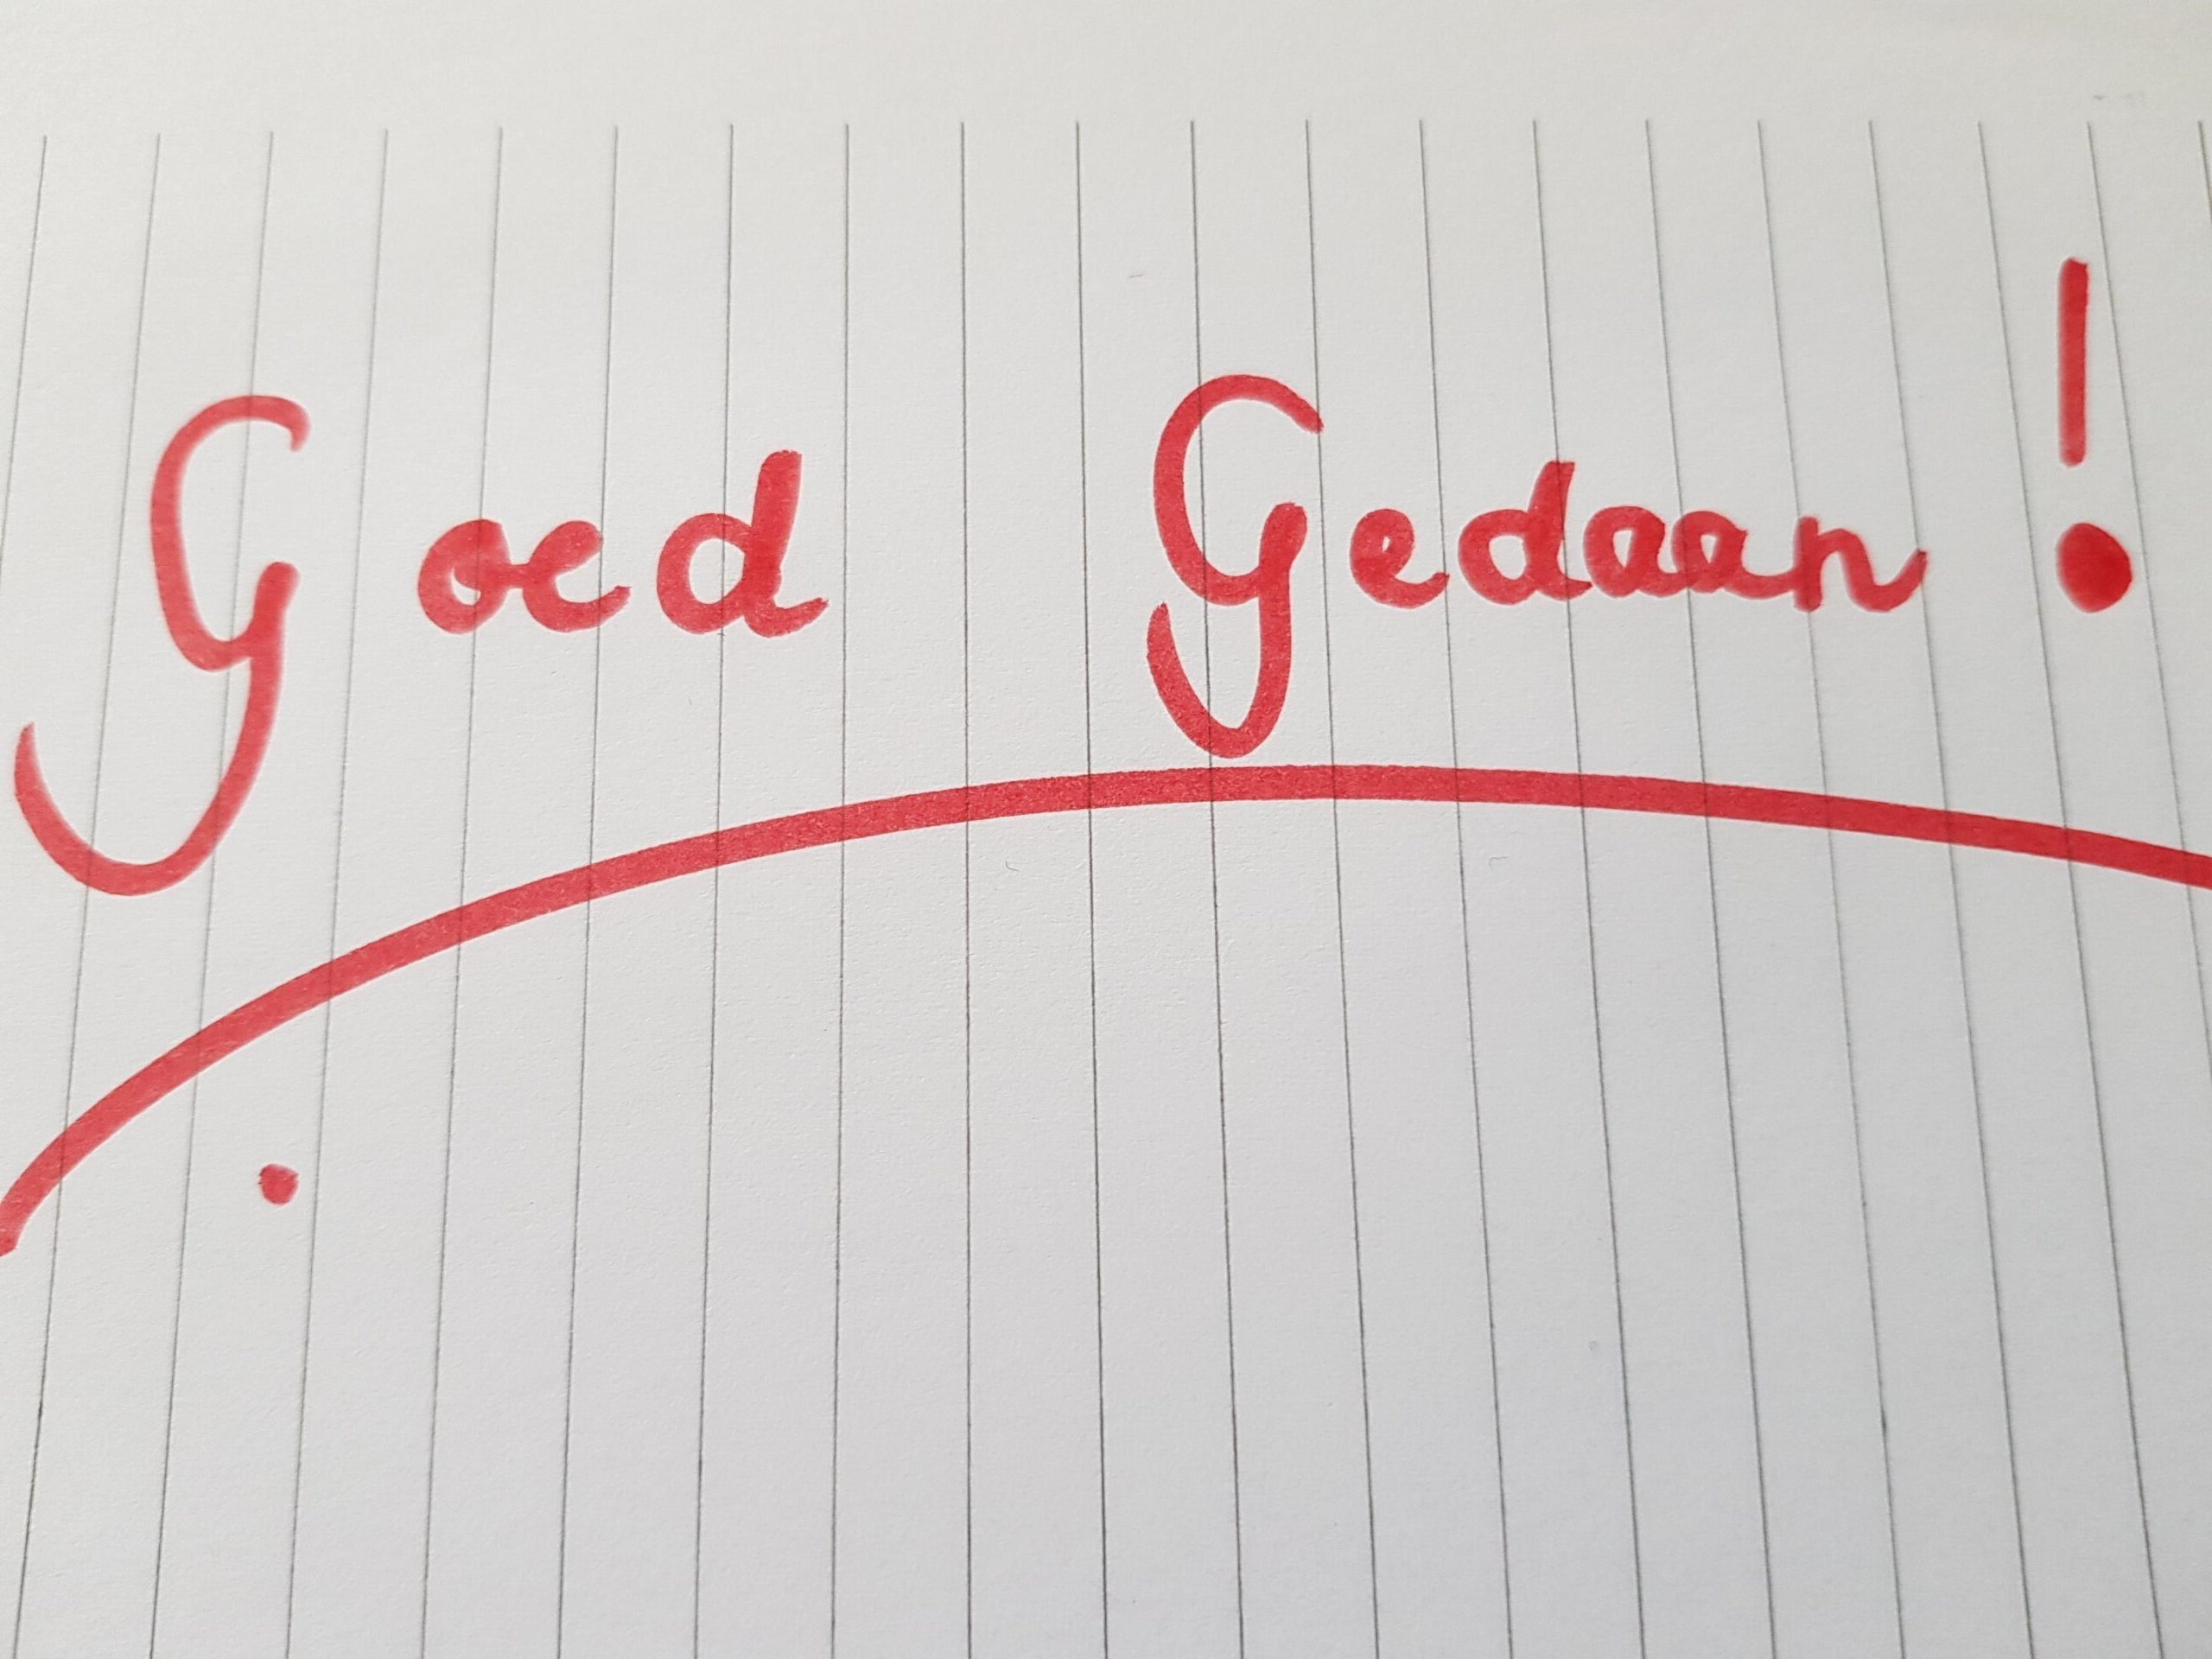 Goed Gedaan!